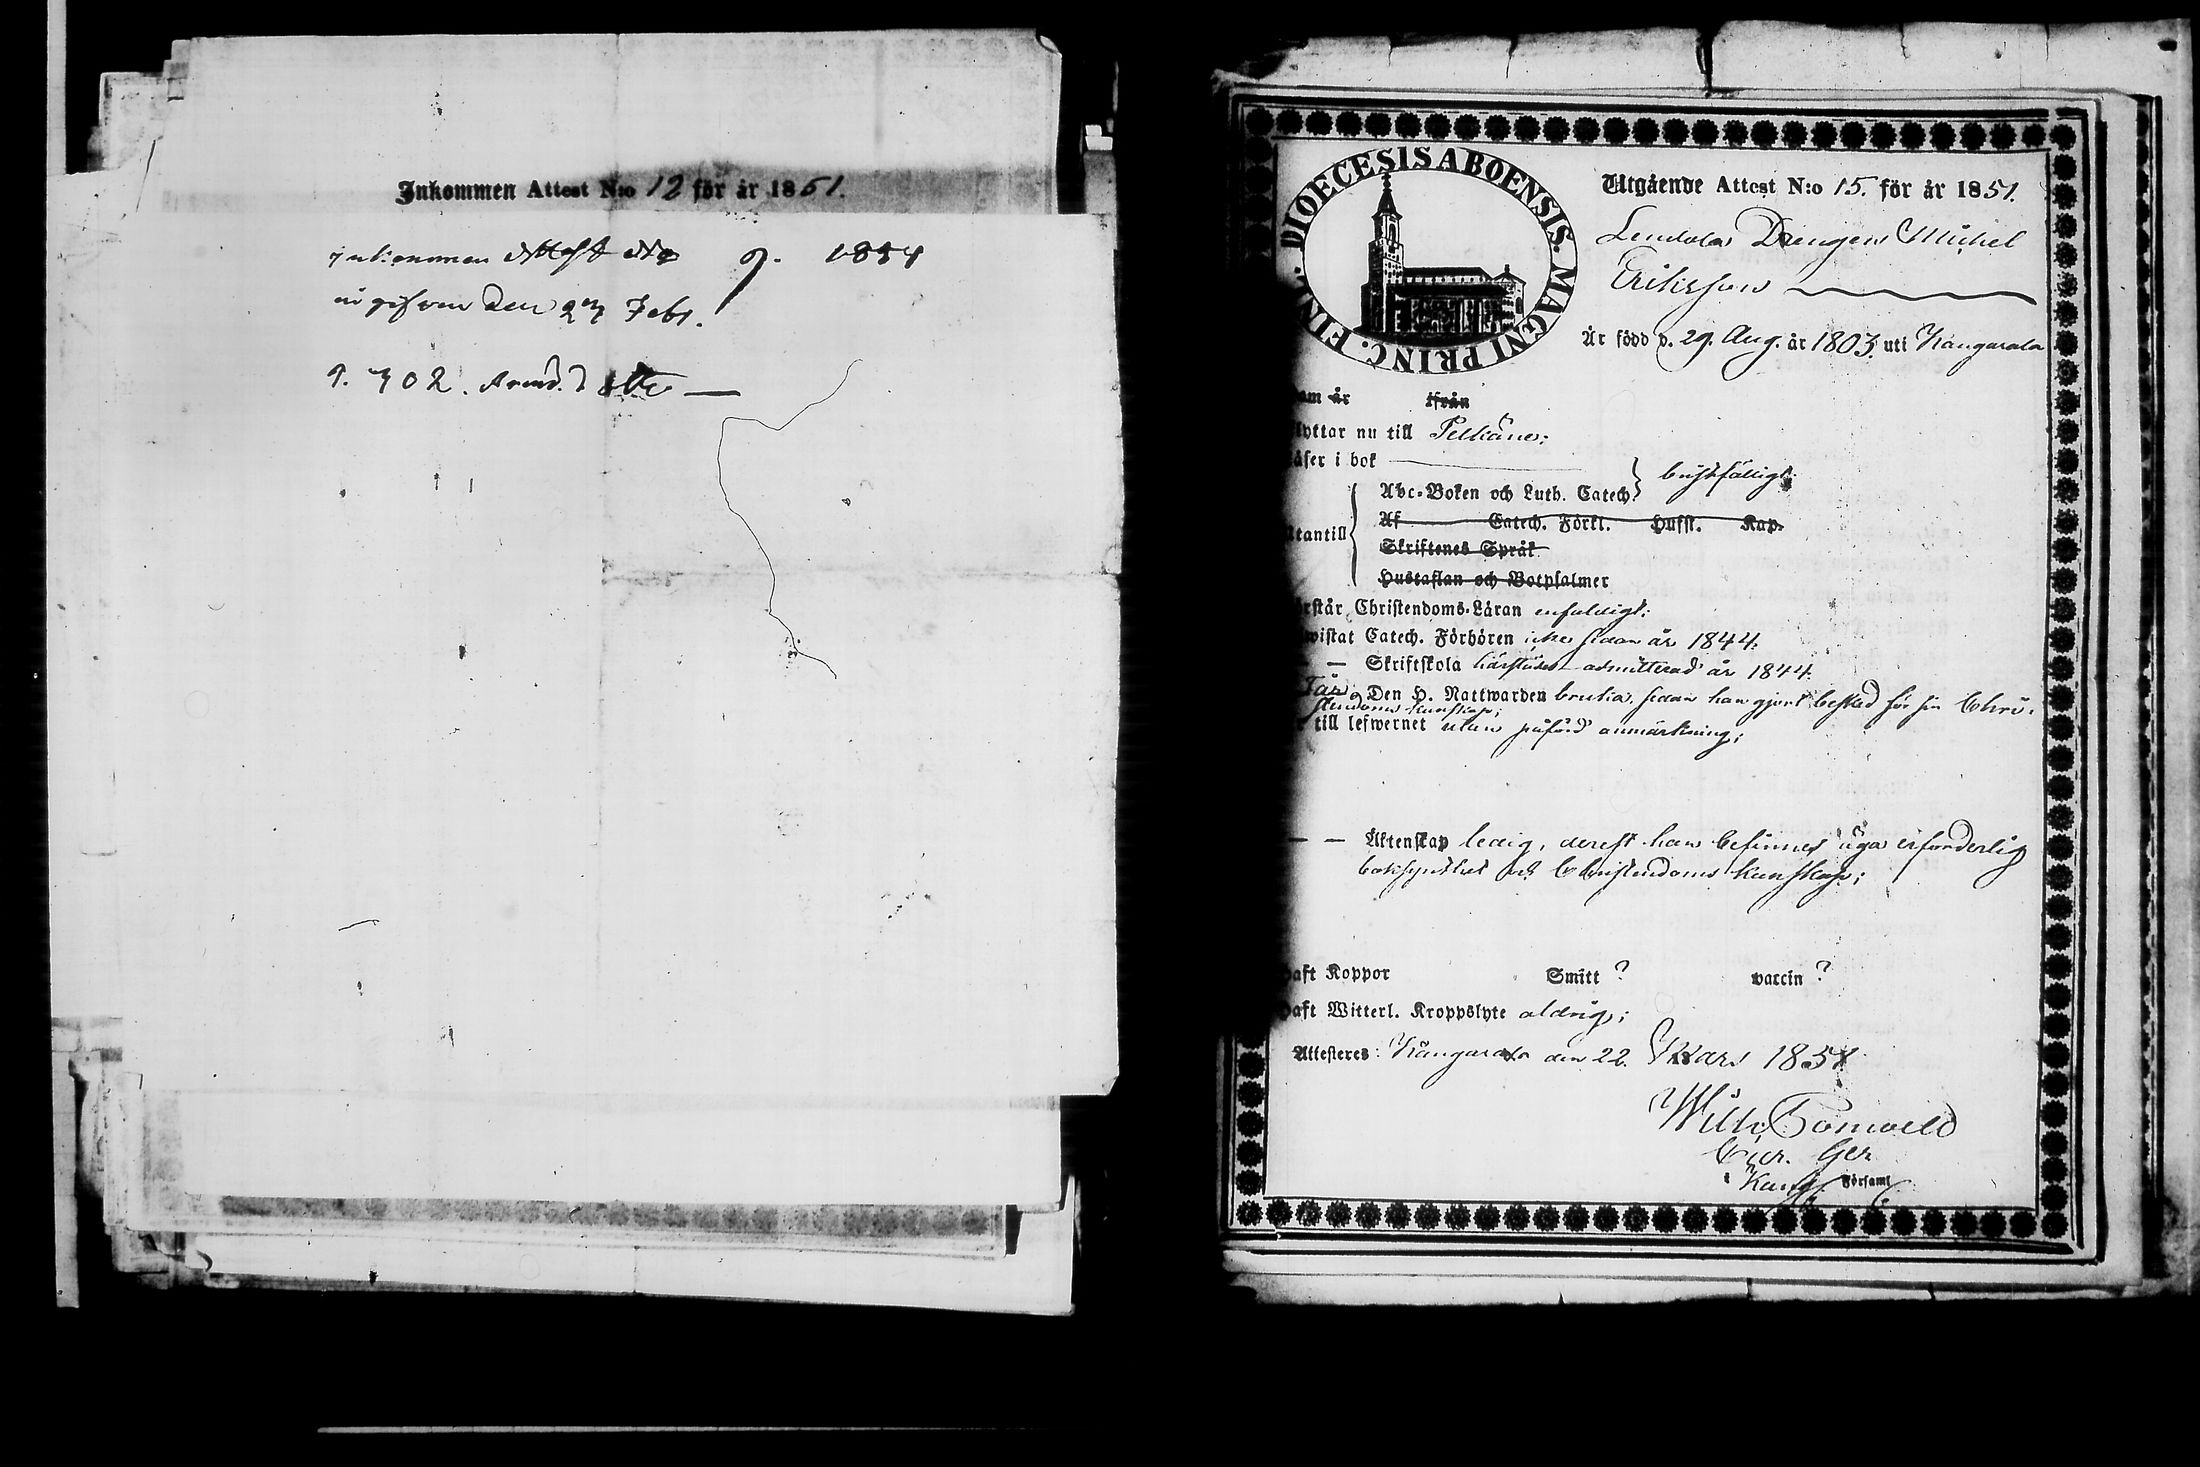 Inkommen Attest N:o 12 för år 1851.
Inkommen Attest No 9. 1851
den 27 Febr.
P. 702.
DIOECESIS ABOENSIS. MAGNI PRINC. FINL.
Utgående Attest N:o 15. för år 1851.
Drengen Michel
Eriksson
Är född d. 29. Aug. år 1803. uti Kangasala
am år ifrån
lyttar nu till Pelkäne;
äser i bok
Abc-Boken och Luth. Catech. bristfälligt;
Af Catech. Förkl. Hufst. Kap.
tantill
Skriftenes Språk
Hustaflan och Botpsalmer
rstår Christendoms-Läran enfaldigt;
wistat Catech. Förhören icke sedan år 1844;
— Skriftskola härstädes admitterad år 1844.
Får Den H. Nattwarden bruka, sedan han gjort besked för sin Chri-
stendoms kunskap;
till lefwernet utan påförd anmärkning;
— — Äktenskap ledig, derest han befinnes äga erforderlig
och Christendoms kunskap;
aft Koppor Smitt ? vaccin ?
aft Witterl. Kroppslyte aldrig;
Attesteres: Kangasala den 22. Mars 1851
Wilh.
Kang. Församl